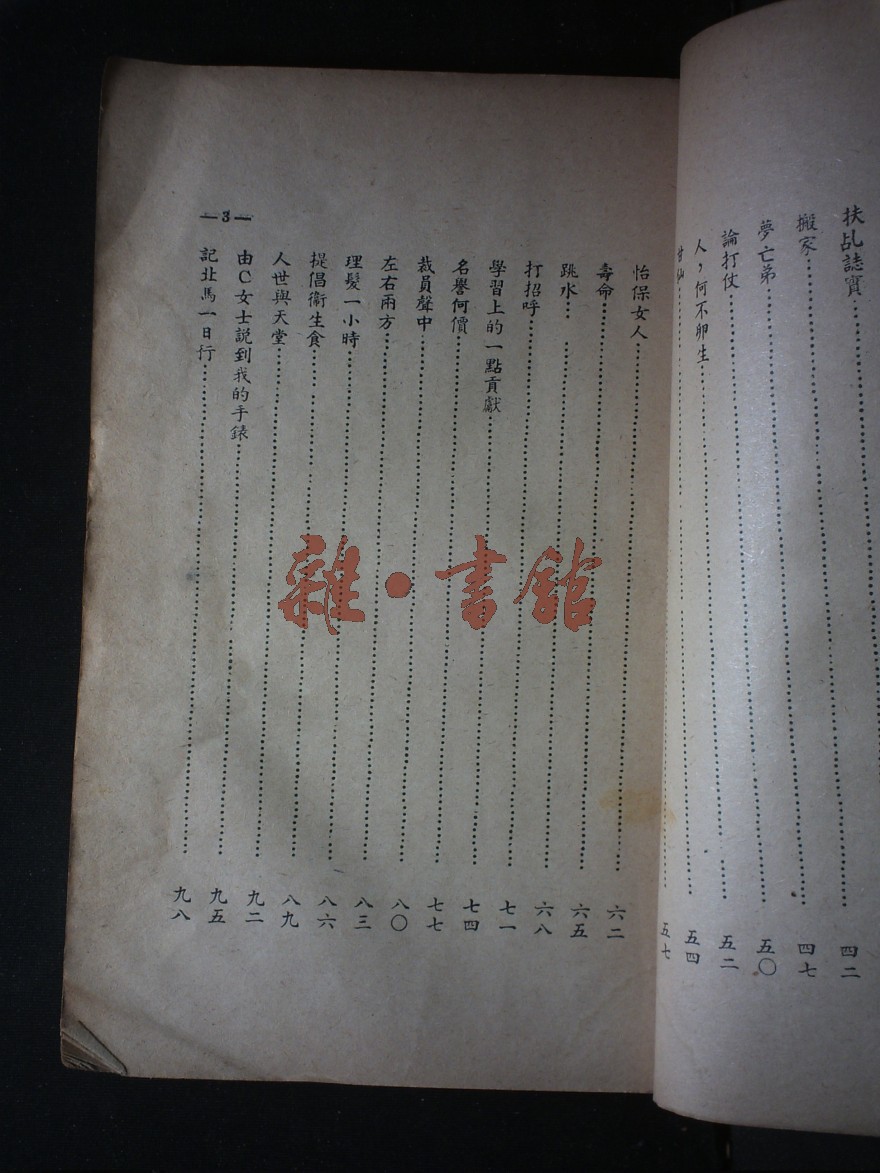 扶乩誌實⋯⋯四二
搬家⋯⋯四七
夢亡弟⋯⋯五〇
論打仗⋯⋯五二
人，何不卵生⋯⋯五四
⋯⋯五七
怡保女人⋯⋯六二
壽命⋯⋯六五
跳水⋯⋯六八
打招呼⋯⋯七一
學習上的一點貢獻⋯⋯七四
名譽何價⋯⋯七七
裁員聲中⋯⋯八〇
左右兩方⋯⋯八三
理髮一小時⋯⋯八六
提倡衞生食⋯⋯八九
人世與天堂⋯⋯九二
由C女士説到我的手錶⋯⋯九五
記北馬一日行⋯⋯九八
—3—
雜·書館